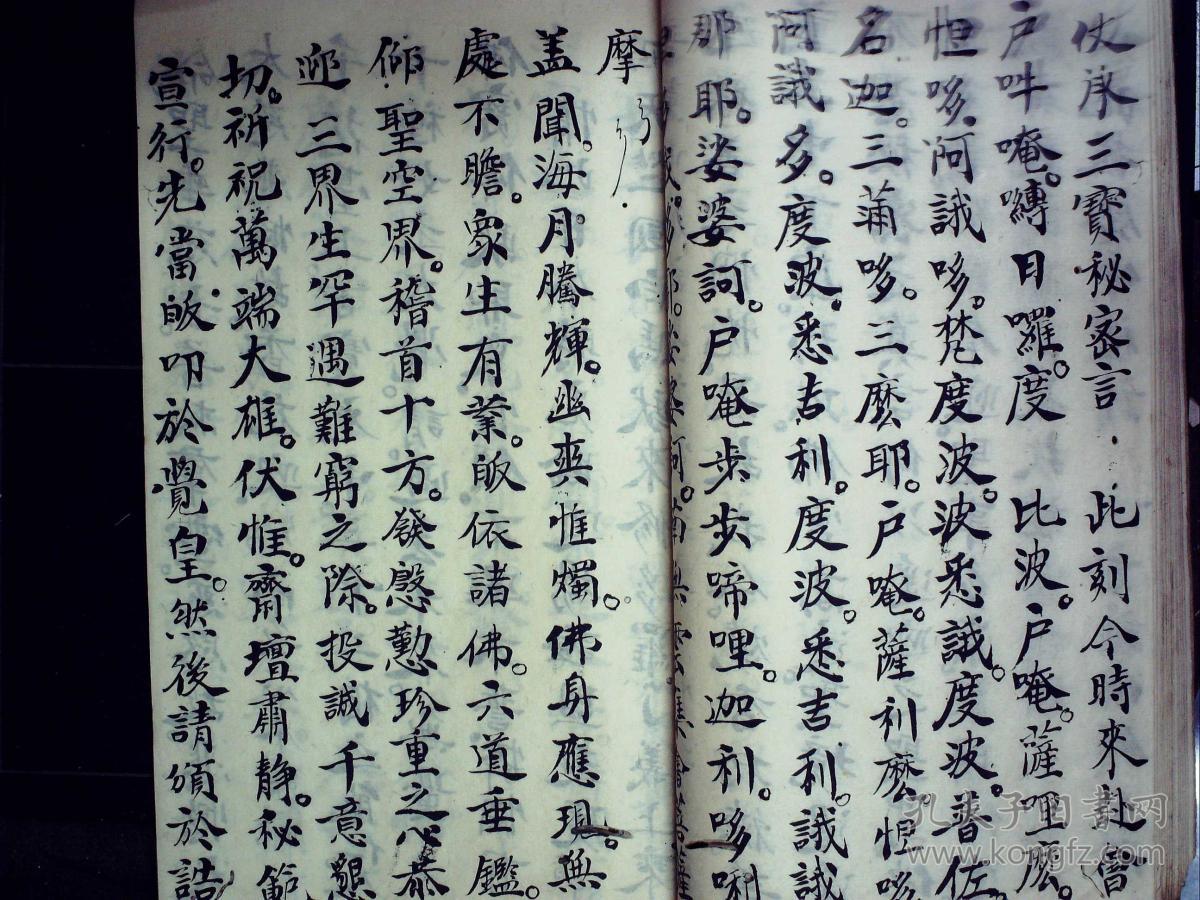 仗承三寶秘密言 此刻今時來赴
戶吽唵。嚩日囉。度 比波。戶唵。薩哩麽。
怛哆。阿誐哆。梵度波。波悉誐。度波。普佐
名迦。三蒲哆。三麽耶。戶唵。薩利麽。怛哆
阿誐多。度波。悉吉利。度波。悉吉利。誐誐
那耶。娑婆訶。戶唵步步啼哩。迦利。哆唎
摩
盖聞。海月騰輝。幽爽惟燭。佛身應現。無
處不膽。衆生有業。皈依諸佛。六道垂鑑。
仰聖空界。稽首十方。發慇懃珍重之心恭
迎 三界生罕遇難窮之際。投誠 千意懇
切。祈祝萬端大雄。伏惟。齋壇肅静。秘範
宣行。先當皈叩於覺皇。然後請頒於誥
孔夫子旧书网
www.kongfz.com